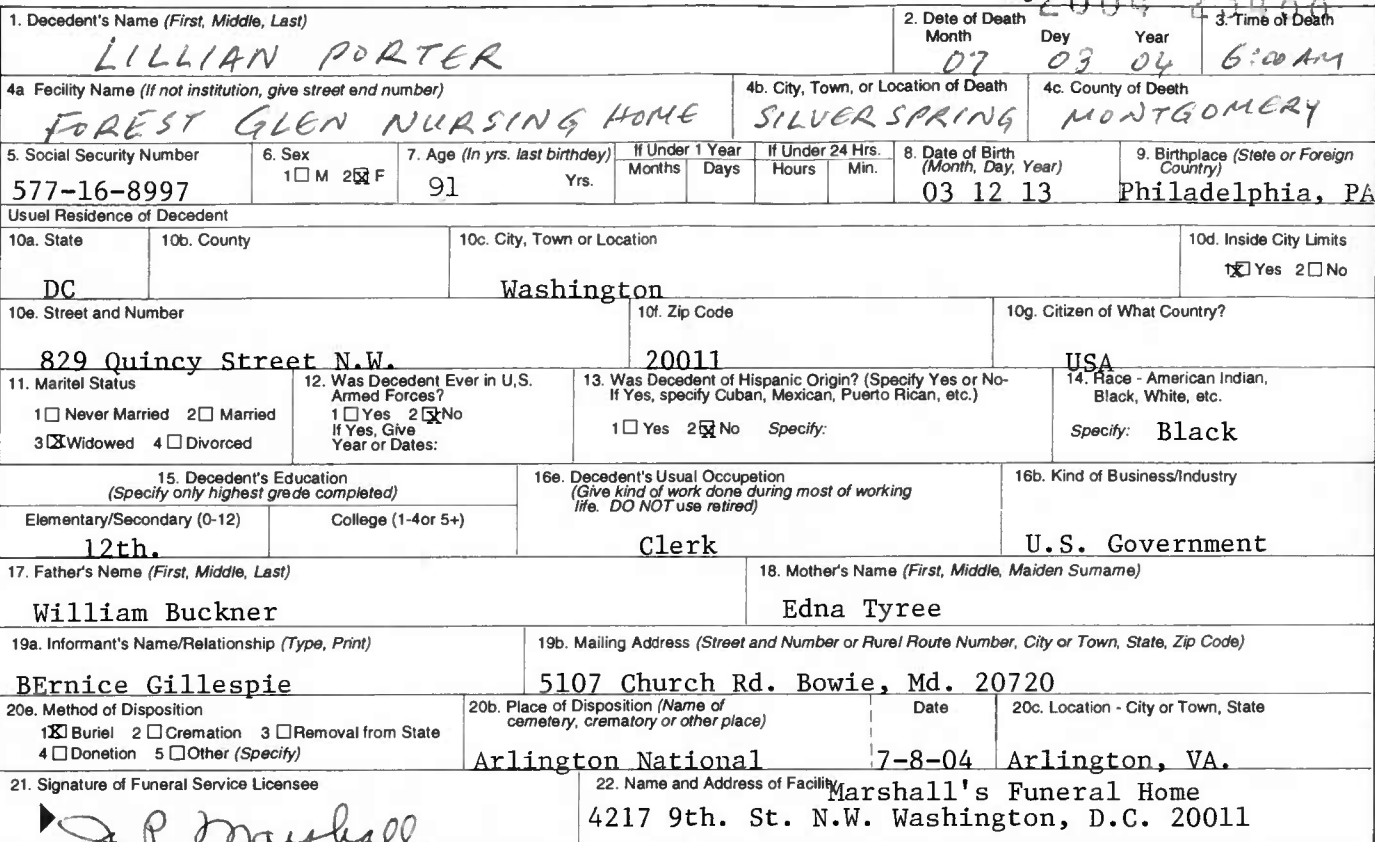 1. Decedent's Name (First, Middle, Last)
LILLIAN PORTER
2. Dete of Death
Month Dey Year
07 03 04
3. Time of Death
6:00 AM
4a Fecility Name (If not institution, give street end number)
FOREST GLEN NURSING HOME
4b. City, Town, or Location of Death
SILVER SPRING
4c. County of Deeth
MONTGOMERY
5. Social Security Number
577-16-8997
6. Sex
1 M 2 F
7. Age (In yrs. last birthdey)
91 Yrs.
If Under 1 Year
Months Days
If Under 24 Hrs.
Hours Min.
8. Date of Birth
(Month, Day, Year)
03 12 13
9. Birthplace (Stete or Foreign
Country)
Philadelphia, PA
Usuel Residence of Decedent
10a. State
DC
10b. County
10c. City, Town or Location
Washington
10d. Inside City Limits
1 Yes 2 No
10e. Street and Number
829 Quincy Street N.W.
10f. Zip Code
20011
10g. Citizen of What Country?
USA
11. Maritel Status
1 Never Married 2 Married
3 Widowed 4 Divorced
12. Was Decedent Ever in U,S.
Armed Forces?
1 Yes 2 No
If Yes, Give
Year or Dates:
13. Was Decedent of Hispanic Origin? (Specify Yes or No-
If Yes, specify Cuban, Mexican, Puerto Rican, etc.)
1 Yes 2 No Specify:
14. Race - American Indian,
Black, White, etc.
Specify: Black
15. Decedent's Education
(Specify only highest grede completed)
Elementary/Secondary (0-12)
12th.
College (1-4or 5+)
16e. Decedent's Usual Occupetion
(Give kind of work done during most of working
life. DO NOT use retired)
Clerk
16b. Kind of Business/Industry
U.S. Government
17. Father's Neme (First, Middle, Last)
William Buckner
18. Mother's Name (First, Middle, Maiden Surname)
Edna Tyree
19a. Informant's Name/Relationship (Type, Print)
BErnice Gillespie
19b. Mailing Address (Street and Number or Rurel Route Number, City or Town, State, Zip Code)
5107 Church Rd. Bowie, Md. 20720
20e. Method of Disposition
1 Buriel 2 Cremation 3 Removal from State
4 Donetion 5 Other (Specify)
20b. Place of Disposition (Name of
cemetery, crematory or other place)
Arlington National
Date
7-8-04
20c. Location - City or Town, State
Arlington, VA.
21. Signature of Funeral Service Licensee
Marshall
22. Name and Address of Facility
Marshall's Funeral Home
4217 9th. St. N.W. Washington, D.C. 20011